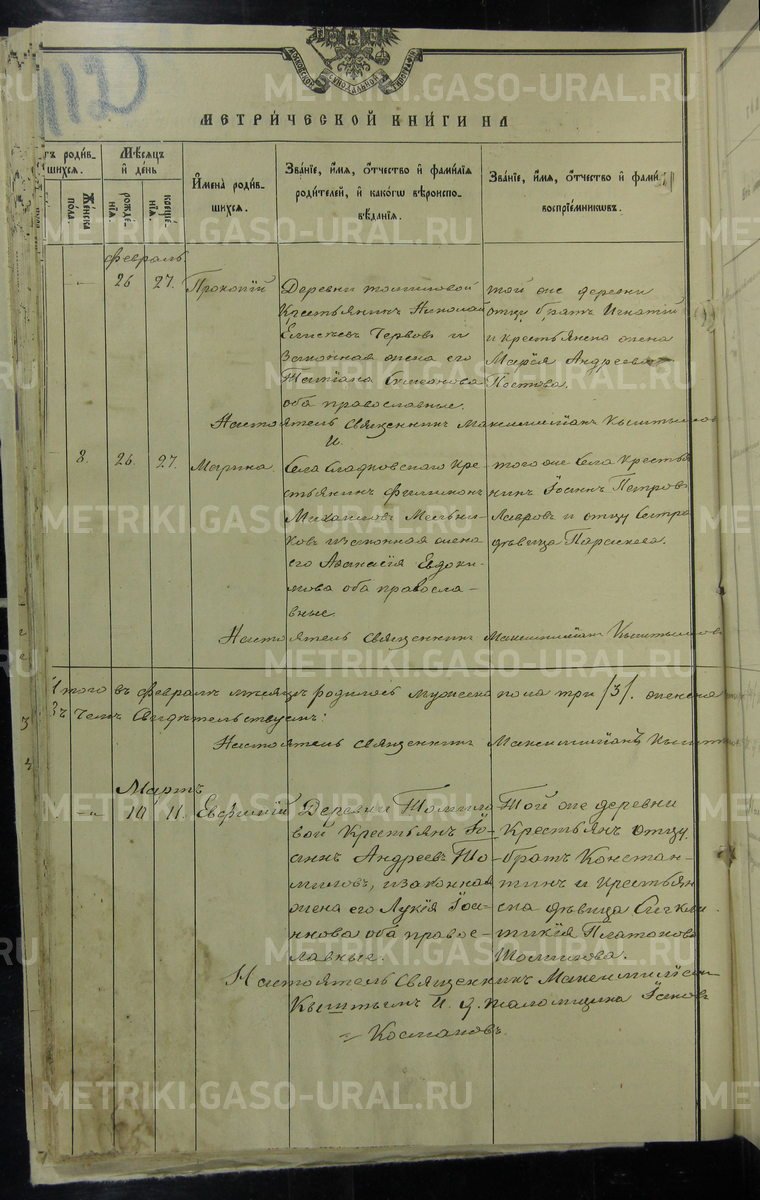 112
МЕТРИ́ЧЕСКОЙ КНИ́ГИ НА
Мѣ́сяцъ и҆ де́нь
Же́нска по́ла
рожде́нїѧ.
креще́нїѧ.
И҆мена̀ роди́вшихсѧ.
Зва́нїе, и҆́мѧ, ѻ҆́тчество и҆ фамі́лїѧ роди́телей, и҆ како́гѡ вѣроисповѣ́данїѧ.
Зва́нїе, и҆́мѧ, ѻ҆́тчество и҆ фамі́
воспрїе́мникѡвъ.
Февраль.
26 27. Прокопій
Деревни Томиловой
Крестьянинъ Николай
Елисѣевъ и
Законная жена его
Татіана Симеонова
оба православные.
той же деревни
отцу братъ Игнатій
и крестьянска жена
Марія Андреева
Постова.
Настоятель Священникъ Максимиліанъ Кыштымовъ
8. 26. 27. Марина.
села Сладковскаго Кре-
стьянинъ Филимонъ
Михаиловъ Мельни-
ковъ и законная жена
его Афанасія Евдоки-
мова оба правосла-
вные.
того же села Крестья
нинъ Іоаннъ Петровъ
Лавровъ и отцу сестра
дѣвица Параскева.
Настоятель Священникъ Максимиліанъ Кыштымовъ
Итого въ февралѣ мѣсяцѣ родилось Мужеска пола три /3/. женска
въ чемъ Свидѣтельствуемъ:
Настоятель Священникъ Максимиліанъ Кыштым
Мартъ
10 11. Евфимій
Деревни Томило
вой Крестьянъ Іо-
аннъ Андреевъ То-
миловъ, и законная
жена его Лукія Іоа-
ннова оба правос-
лавные.
Той же деревни
Крестьянъ отцу
братъ Констан-
тинъ и Крестьян
ска дѣвица Сигкли-
тикія Платонова
Томилова.
Настоятель Священникъ Максимиліан
Кыштым. И. д. псаломщика Іаковъ
Космаковъ.
METRIKI.GASO-URAL.RU